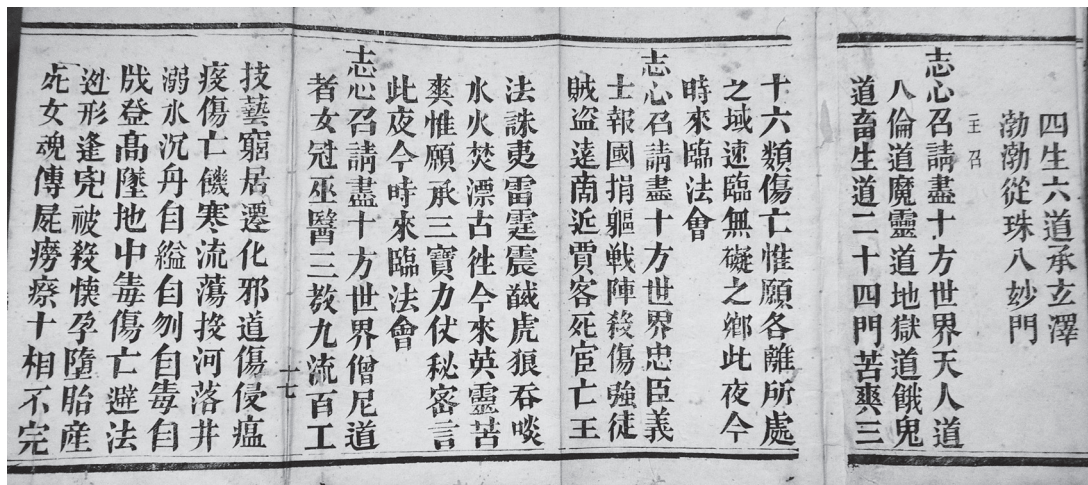 四生六道承玄澤
渤渤從珠入妙門
主召
志心召請盡十方世界天人道
人倫道魔靈道地獄道餓鬼
道畜生道二十四門苦爽三
十六類傷亡惟願各離所處
之域速臨無礙之鄉此夜今
時來臨法會
志心召請盡十方世界忠臣義
士報國捐軀戰陣殺傷強徒
賊盜遠商近賈客死宦亡王
法誅夷雷霆震馘虎狼吞啖
水火焚漂古徃今來英靈苦
爽惟願承三寶力伏秘密言
此夜今時來臨法會
志心召請盡十方世界僧尼道
者女冠巫醫三教九流百工
十七
技藝寤居遷化邪道傷侵瘟
疫傷亡饑寒流蕩投河落井
溺水沉舟自縊自刎自毒自
戕登高墜地中毒傷亡避法
迯形逢兇被殺懷孕墮胎産
死女魂傳屍癆瘵十相不完